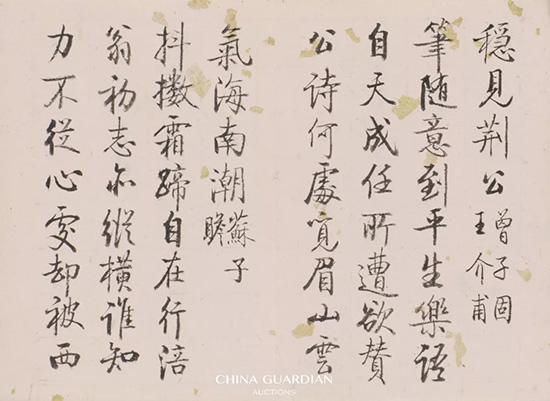 穩見荊公 曾子固 王介甫
筆随意到平生樂語
自天成任所遭欲贊
公诗何處覓眉山雲
氣海南潮 蘇子瞻
抖擻霜蹄自在行涪
翁初志亦縱橫誰知
力不從心處却被西
CHINA GUARDIAN
AUCTIONS